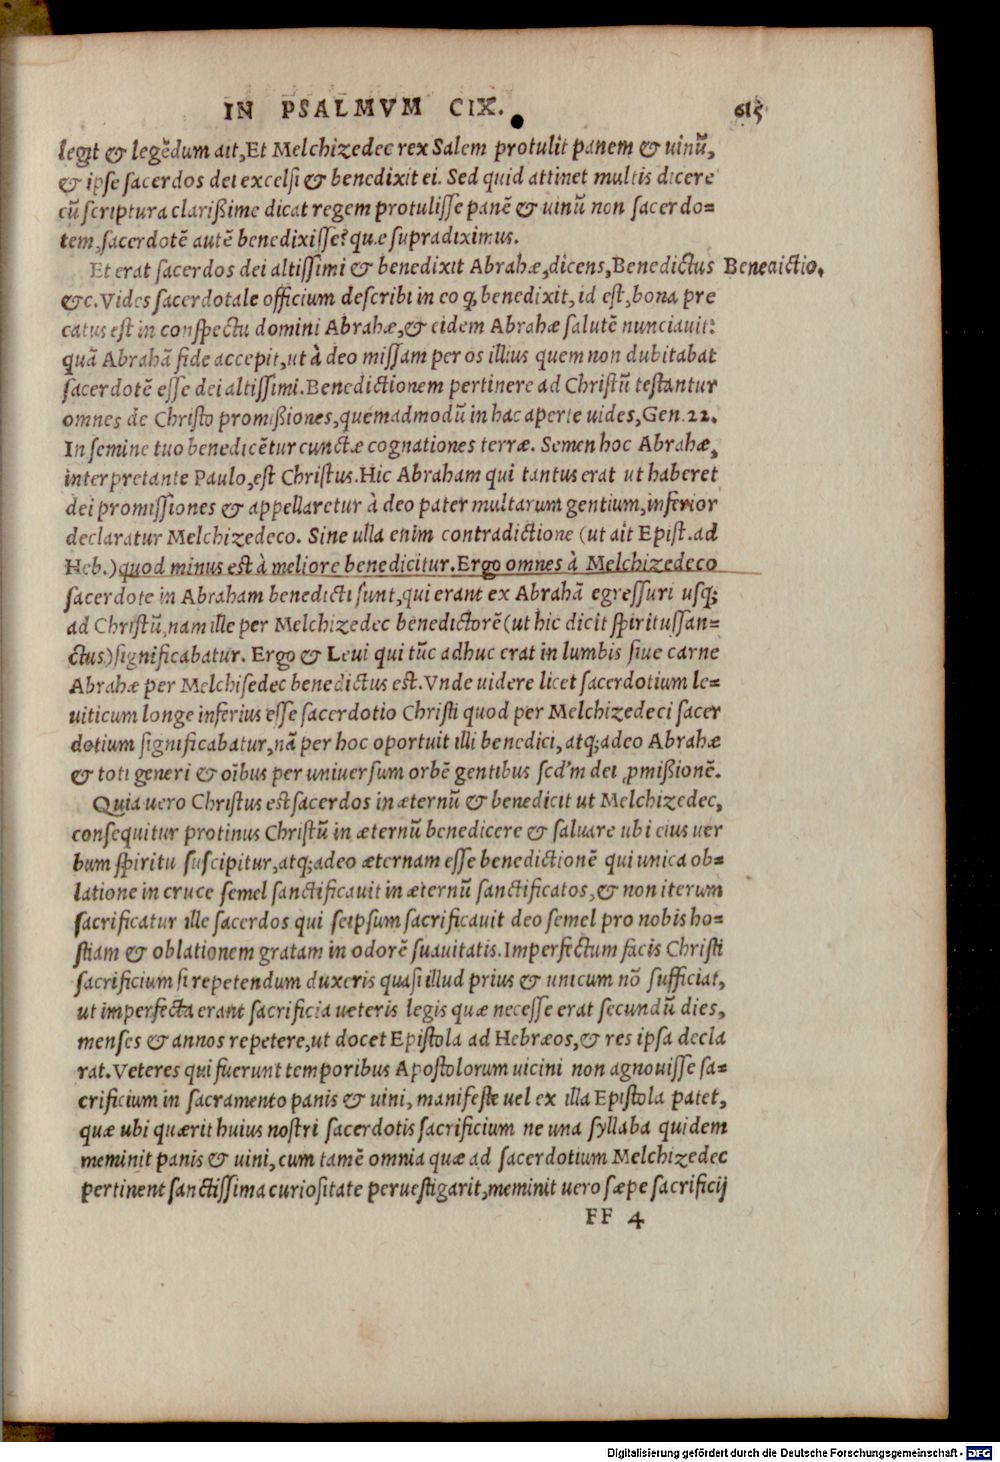 IN PSALMVM CIX. 615
legit & legēdum ait, Et Melchizedec rex Salem protulit panem & uinū,
& ipse sacerdos dei excelsi & benedixit ei. Sed quid attinet multis dicere
cū scriptura clarißime dicat regem protulisse panē & uinū non sacerdo=
tem, sacerdotē autē benedixisse? quæ supradiximus.
Et erat sacerdos dei altissimi & benedixit Abrahæ, dicens, Benedictus Benedictio.
&c. Vides sacerdotale officium describi in eo q, benedixit, id est, bona pre
catus est in conspectu domini Abrahæ, & eidem Abrahæ salutē nunciauit:
quā Abrahā fide accepit, ut à deo missam per os illius quem non dubitabat
sacerdotē esse dei altissimi. Benedictionem pertinere ad Christū testantur
omnes de Christo promißiones, quemadmodū in hac aperte uides, Gen. 22.
In semine tuo benedicētur cunctæ cognationes terræ. Semen hoc Abrahæ,
interpretante Paulo, est Christus. Hic Abraham qui tantus erat ut haberet
dei promissiones & appellaretur à deo pater multarum gentium, inferior
declaratur Melchizedeco. Sine ulla enim contradictione (ut ait Epist. ad
Heb.) quod minus est à meliore benedicitur. Ergo omnes à Melchizedeco
sacerdote in Abraham benedicti sunt, qui erant ex Abrahā egressuri usq;
ad Christū, nam ille per Melchizedec benedictorē (ut hic dicit spiritus san=
ctus) significabatur. Ergo & Leui qui tūc adhuc erat in lumbis siue carne
Abrahæ per Melchisedec benedictus est. Vnde uidere licet sacerdotium le=
uiticum longe inferius esse sacerdotio Christi quod per Melchizedeci sacer
dotium significabatur, nā per hoc oportuit illi benedici, atq; adeo Abrahæ
& toti generi & oībus per uniuersum orbē gentibus secd'm dei ꝓmißionē.
Quia uero Christus est sacerdos in æternū & benedicit ut Melchizedec,
consequitur protinus Christū in æternū benedicere & saluare ubi eius uer
bum spiritu suscipitur, atq; adeo æternam esse benedictionē qui unica ob=
latione in cruce semel sanctificauit in æternū sanctificatos, & non iterum
sacrificatur ille sacerdos qui seipsum sacrificauit deo semel pro nobis ho=
stiam & oblationem gratam in odorē suauitatis. Imperfectum facis Christi
sacrificium si repetendum duxeris quasi illud prius & unicum nō sufficiat,
ut imperfecta erant sacrificia ueteris legis quæ necesse erat secundū dies,
menses & annos repetere, ut docet Epistola ad Hebræos, & res ipsa decla
rat. Veteres qui fuerunt temporibus Apostolorum uicini non agnouisse sa=
crificium in sacramento panis & uini, manifeste uel ex illa Epistola patet,
quæ ubi quærit huius nostri sacerdotis sacrificium ne una syllaba quidem
meminit panis & uini, cum tamē omnia quæ ad sacerdotium Melchizedec
pertinent sanctissima curiositate peruestigarit, meminit uero sæpe sacrificij
FF 4
Digitalisierung gefördert durch die Deutsche Forschungsgemeinschaft - DFG